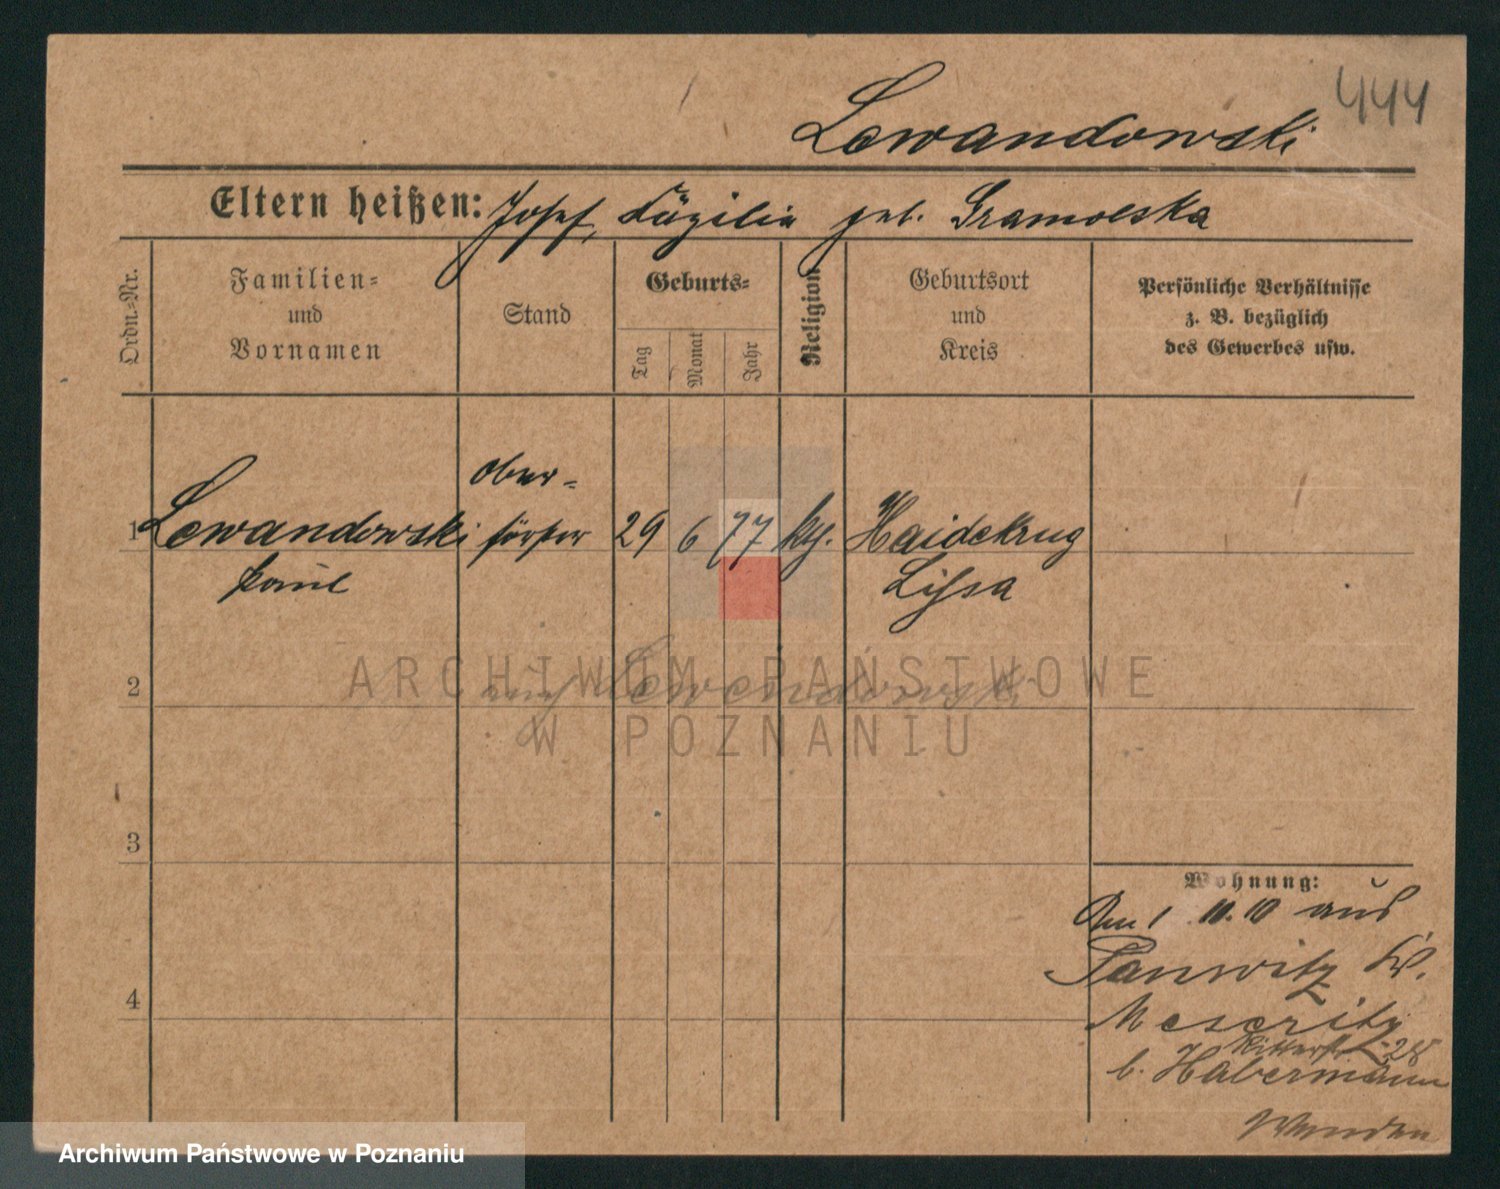 444
Lewandowski
Eltern heißen: Josef, Cäzilia geb. Gramolska
Ordn.-Nr.
Familien-
und
Vornamen
Stand
Geburts-
Tag
Monat
Jahr
Religion
Geburtsort
und
Kreis
Persönliche Verhältnisse
z. B. bezüglich
des Gewerbes usw.
1
Lewandowski
Paul
Ober-
förster
29
6
77
kth.
Haidekrug
Lissa
2
Lewandowski
3
4
Wohnung:
Am 1. 10. 10 aus
Panwitz Kr.
Meseritz
Ritterstr. 28
b. Habermann
ARCHIWUM PAŃSTWOWE
W POZNANIU
Archiwum Państwowe w Poznaniu